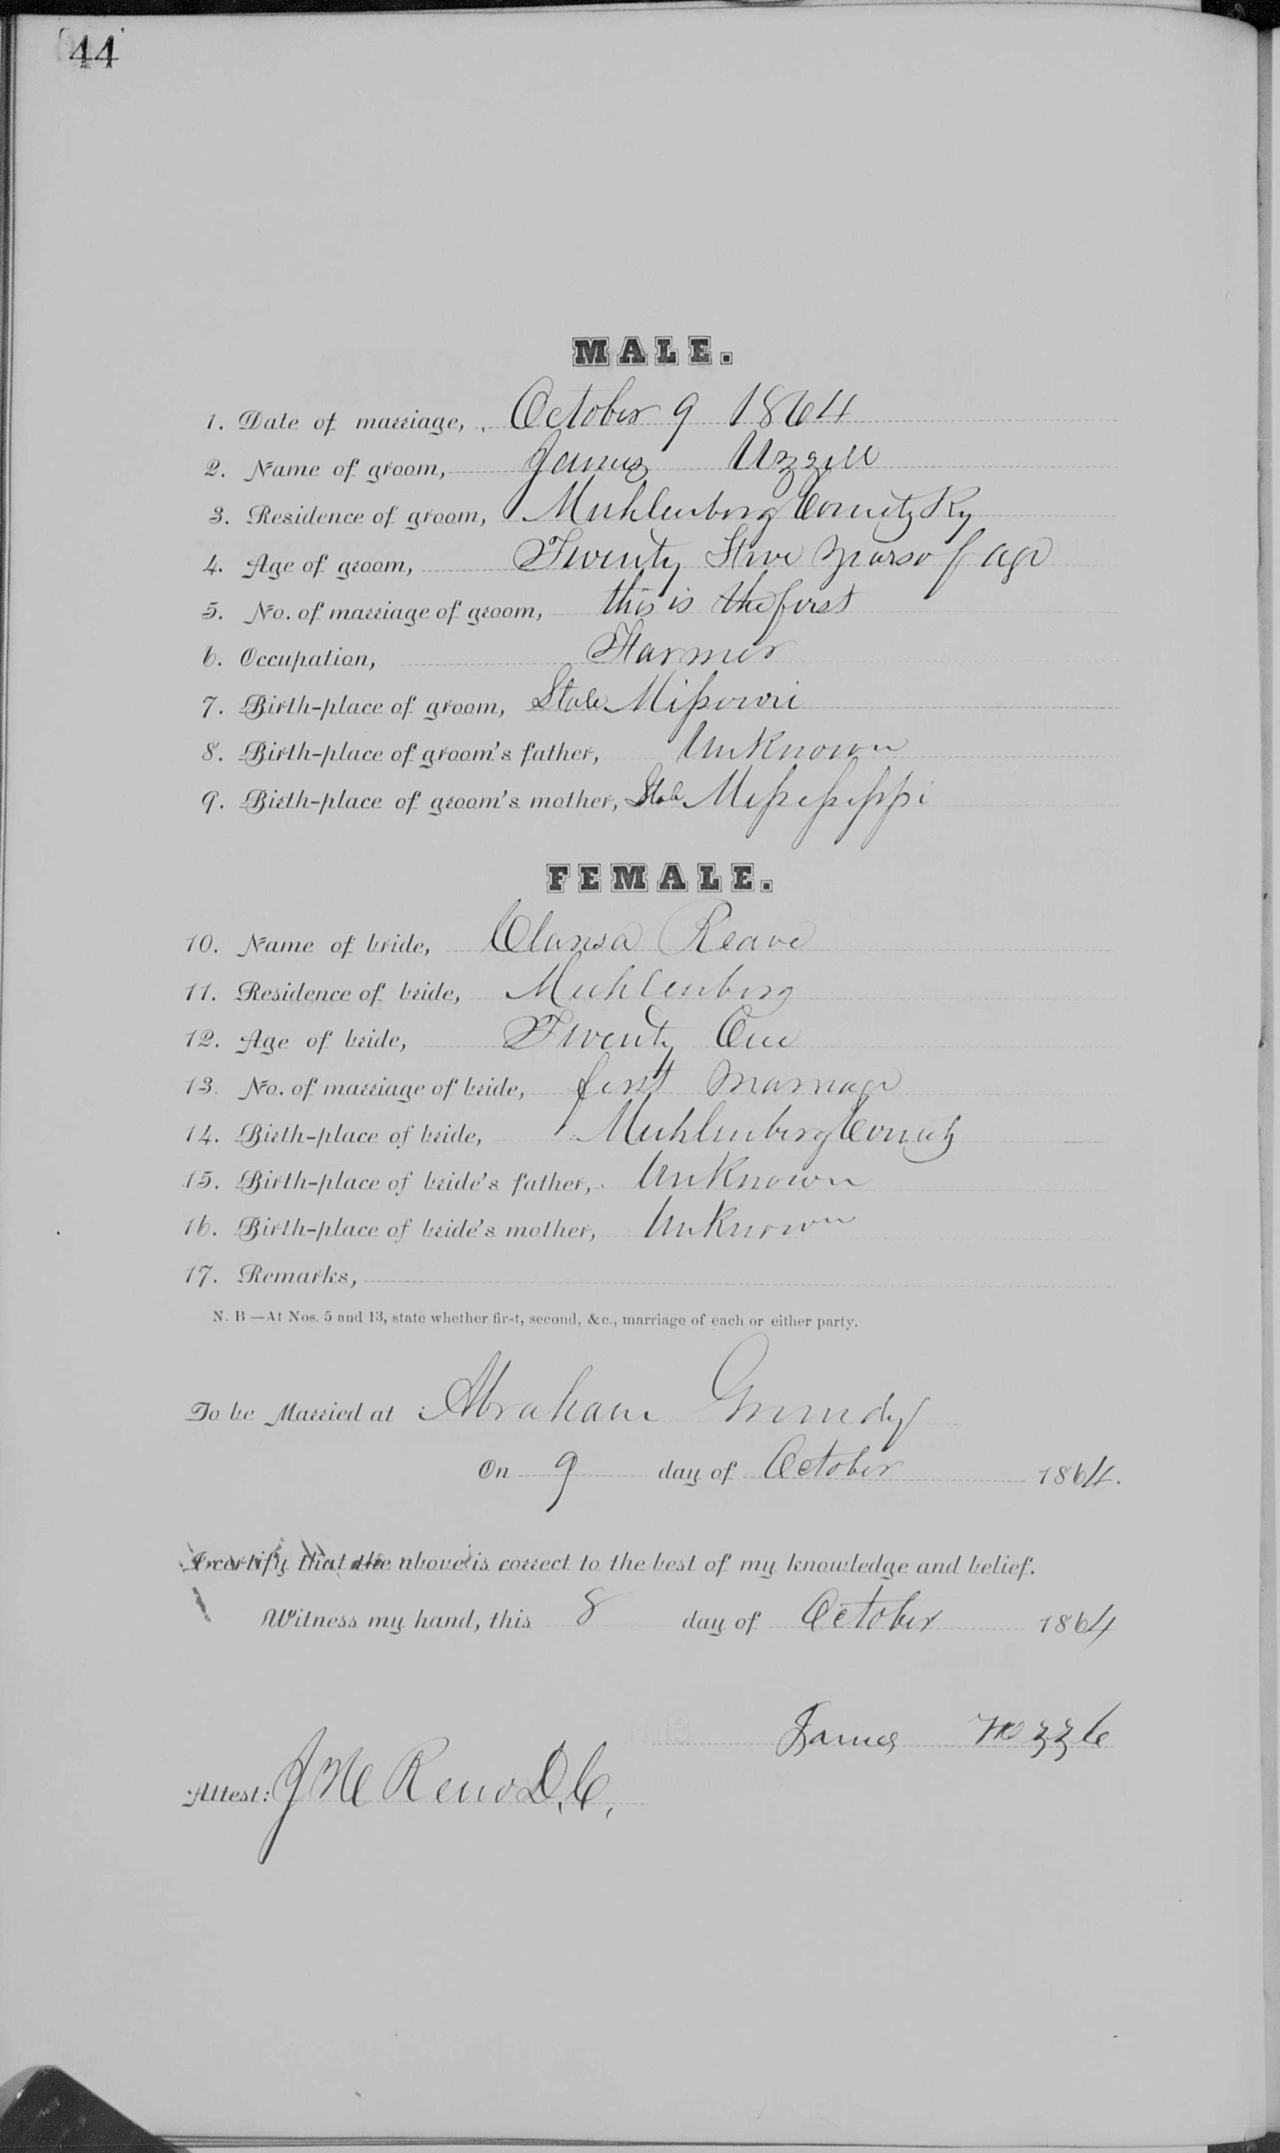 44
MALE.
1. Date of marriage, October 9 1864
2. Name of groom, James Uzzell
3. Residence of groom, Muhlenberg County Ky
4. Age of groom, Twenty five years of age
5. No. of marriage of groom, this is the first
6. Occupation, Farmer
7. Birth-place of groom, State Missouri
8. Birth-place of groom's father, Unknown
9. Birth-place of groom's mother, State Mississippi
FEMALE.
10. Name of bride, Clarisa
11. Residence of bride, Muhlenberg
12. Age of bride, Twenty One
13. No. of marriage of bride, first marriage
14. Birth-place of bride, Muhlenberg County
15. Birth-place of bride's father, Unknown
16. Birth-place of bride's mother, Unknown
17. Remarks,
N. B—At Nos. 5 and 13, state whether first, second, &c., marriage of each or either party.
To be Married at Abraham Grundy
On 9 day of October 1864.
I certify that the above is correct to the best of my knowledge and belief.
Witness my hand, this 8 day of October 1864
James
Attest: Reno D. C.